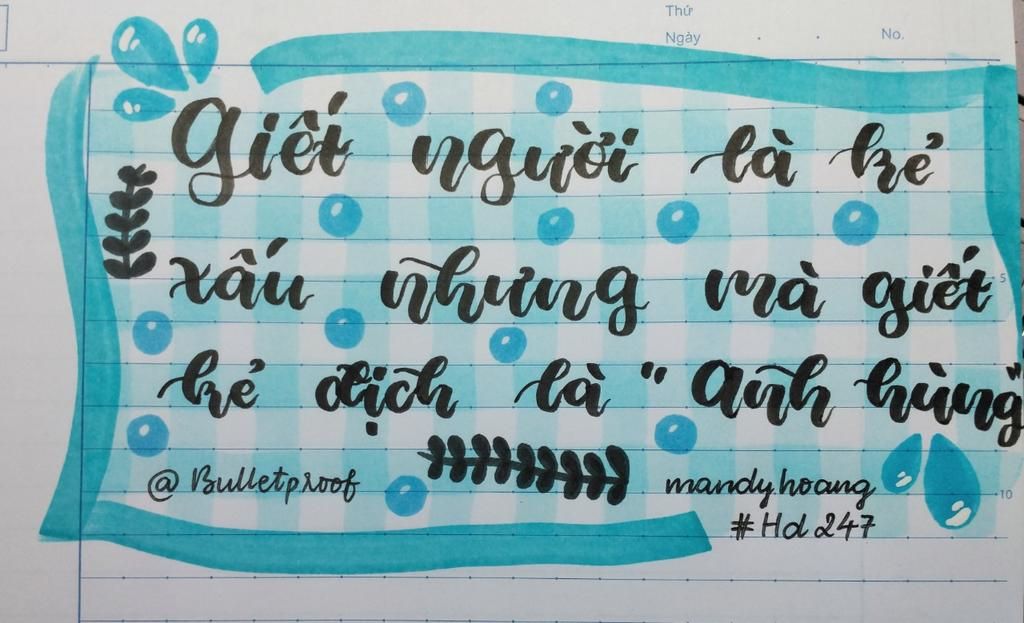 Thứ
Ngày . . No.
Giết người là kẻ
xấu nhưng mà giết
5
kẻ địch là "Anh hùng"
@ Bulletproof
mandyhoang
10
#Hd247